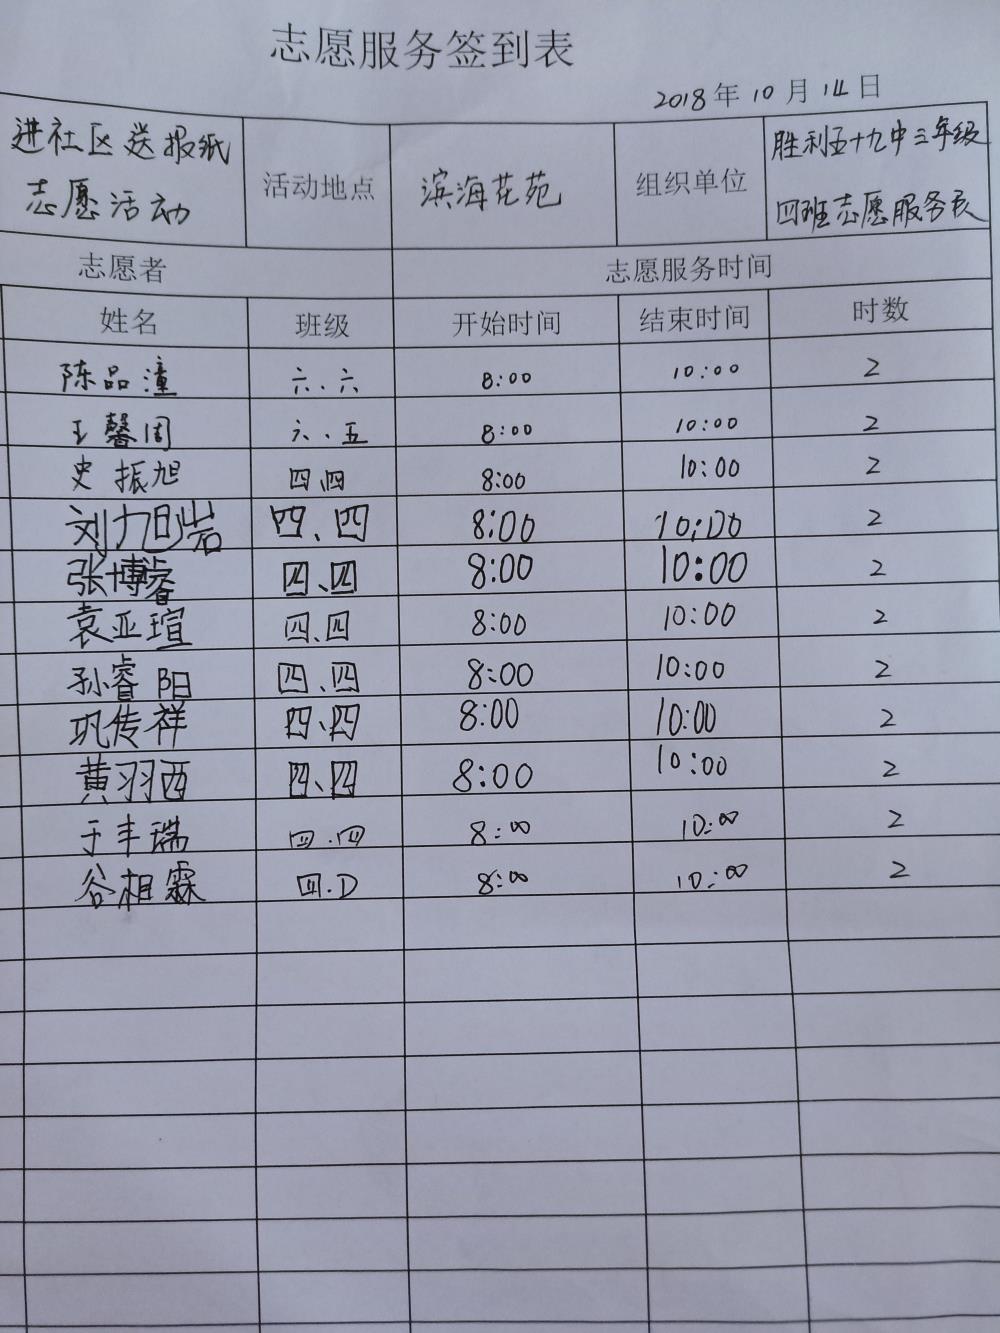 志愿服务签到表
2018年10月14日
进社区送报纸 活动地点 滨海花苑 组织单位 胜利五十九中三年级
志愿活动 四班志愿服务表
志愿者 志愿服务时间
姓名 班级 开始时间 结束时间 时数
陈品潼 六.六 8:00 10:00 2
王馨周 六.五 8:00 10:00 2
史振旭 四.四 8:00 10:00 2
刘力旭岩 四、四 8:00 10:00 2
张博睿 四、四 8:00 10:00 2
袁亚瑄 四.四 8:00 10:00 2
孙睿阳 四.四 8:00 10:00 2
巩传祥 四、四 8:00 10:00 2
黄羽西 四、四 8:00 10:00 2
于丰瑞 四.四 8:00 10:00 2
谷相霖 四.D 8:00 10:00 2